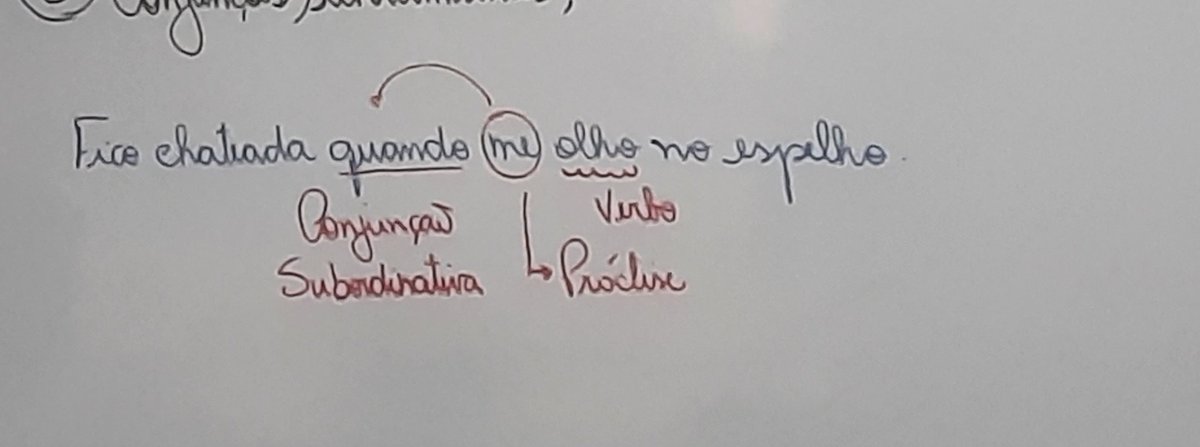 Conjunções subordinativas;
Fico chateada quando me olho no espelho.
Conjunção Verbo
Subordinativa Próclise